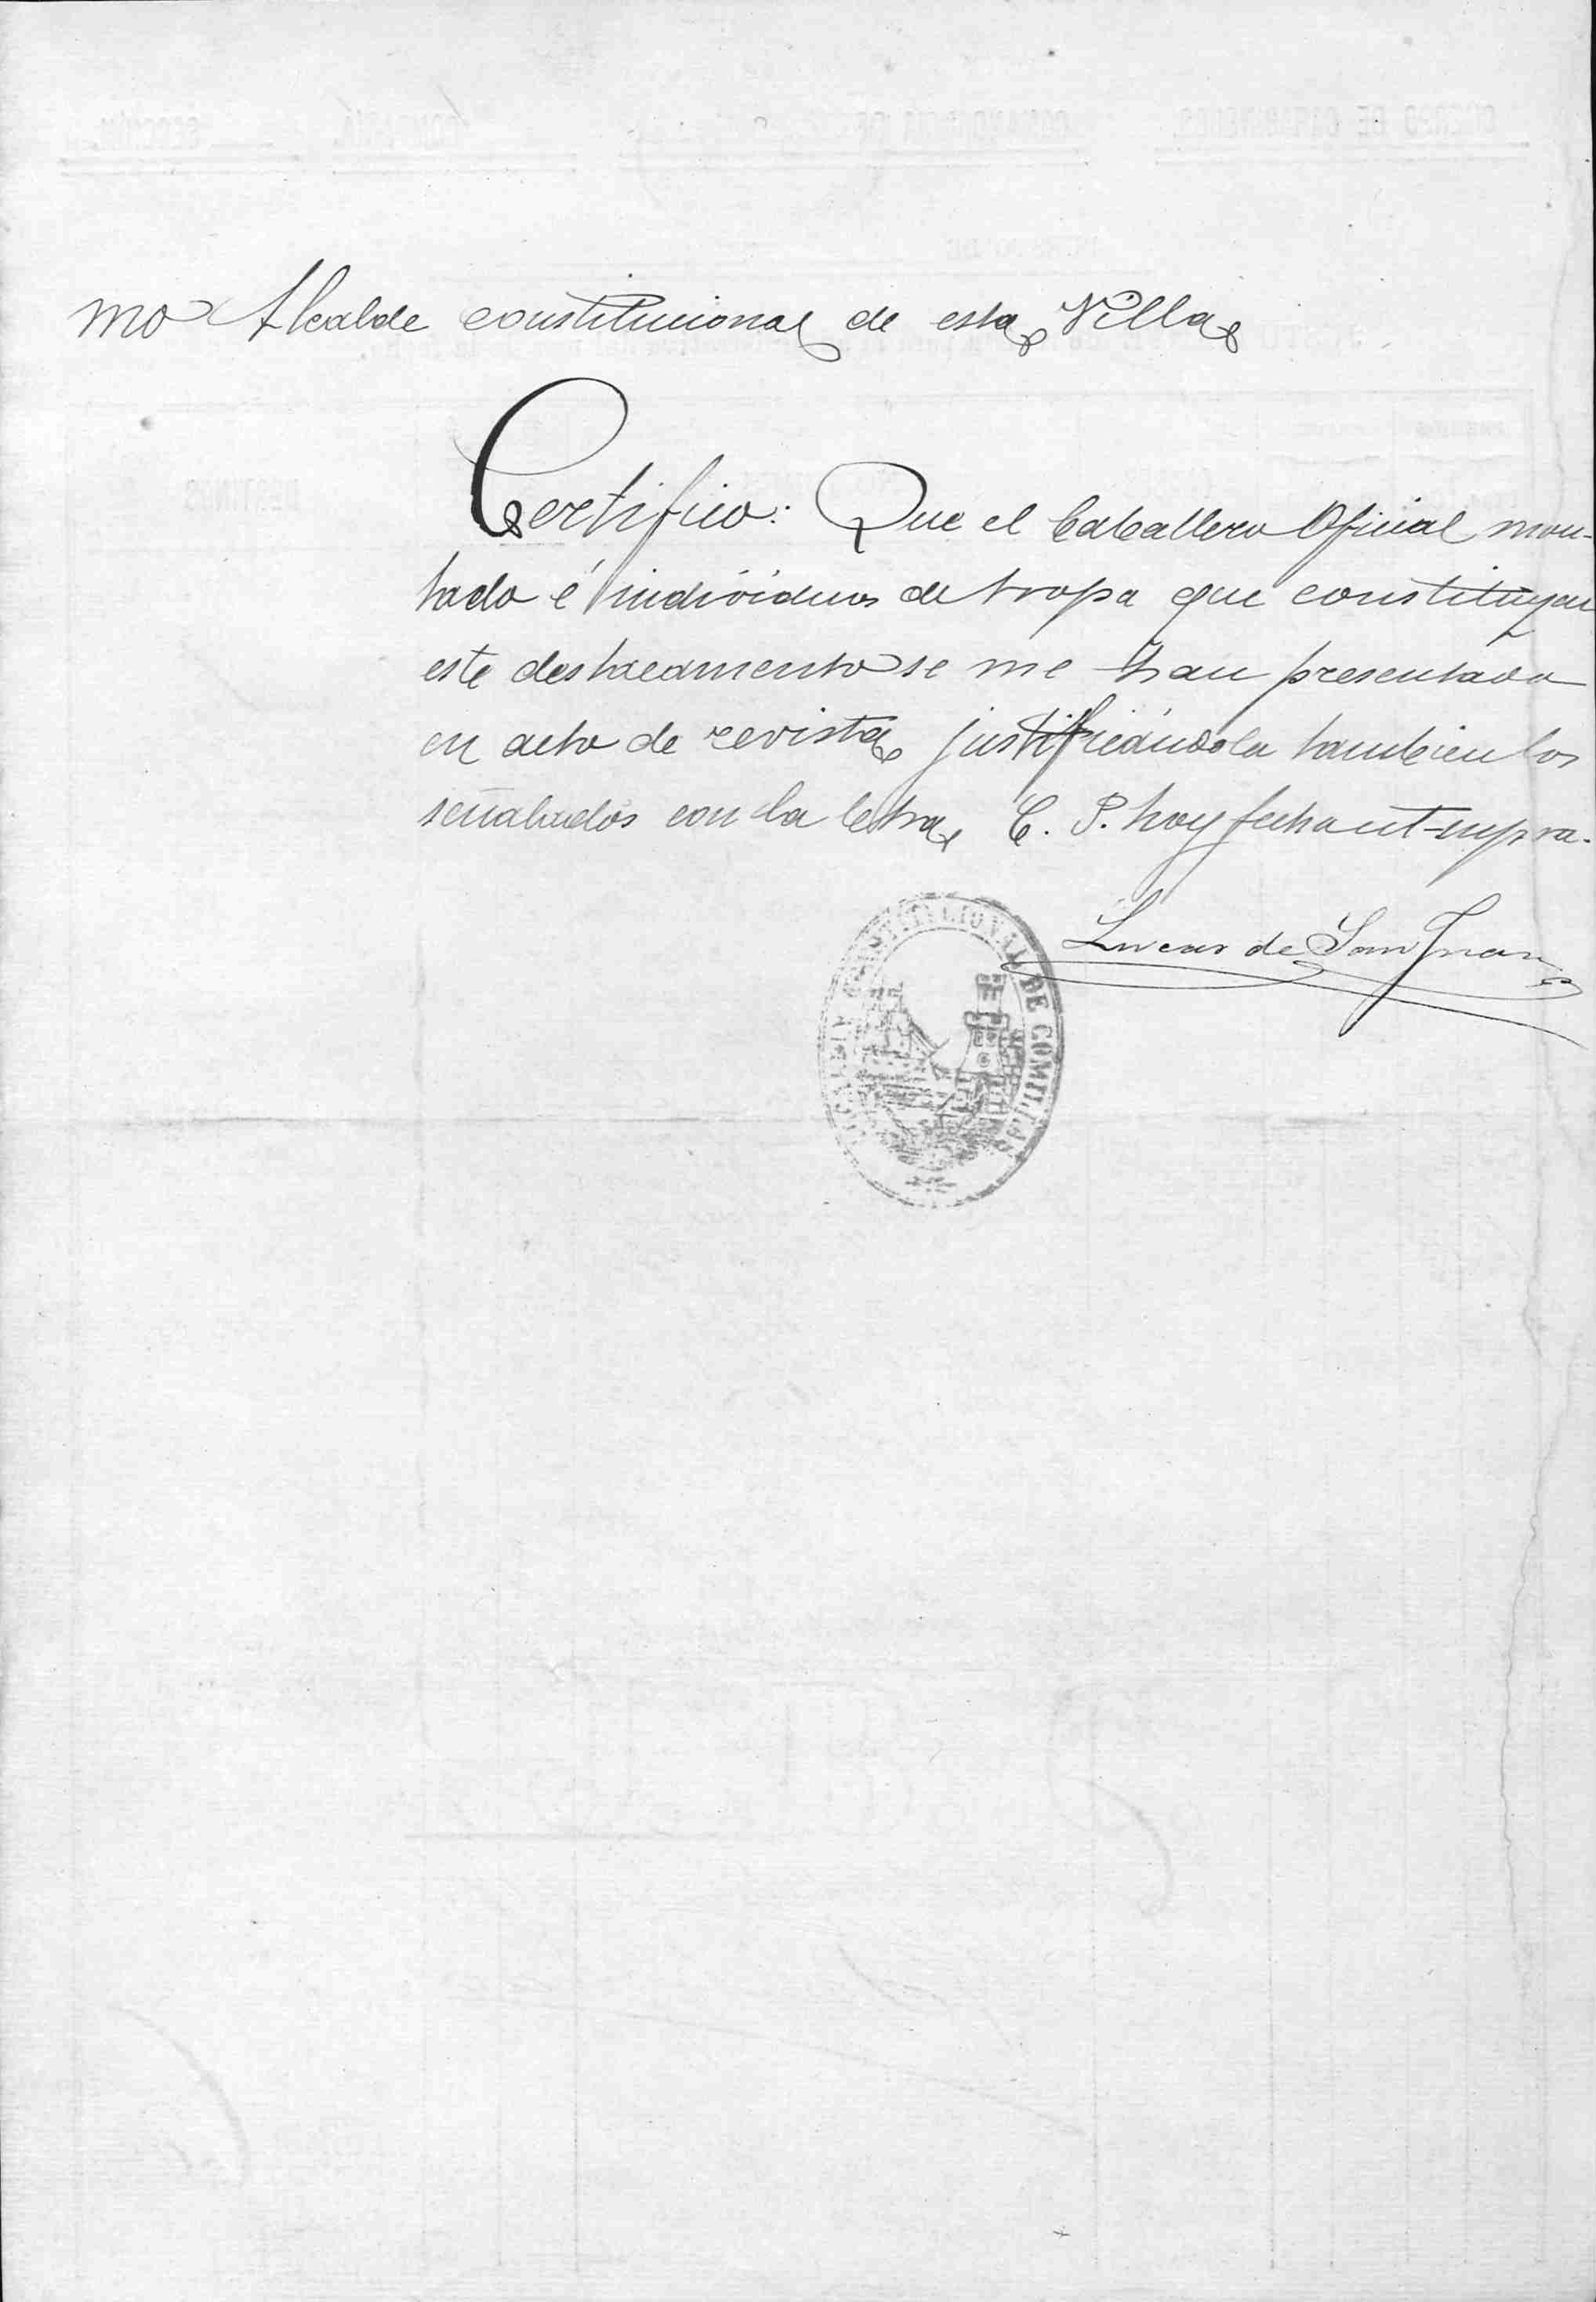 mo Alcalde constitucional de esta Villa
Certifico: Que el Caballero Oficial mon-
tado é individuos de tropa que constituyen
este destacamento se me han presentado
en acto de revista, justificándola tambien los
señalados con la letra, C. P. hoy fecha ut-supra.
Lucas de San Juan
ALCALDIA CONSTITUCIONAL DE COMILLAS